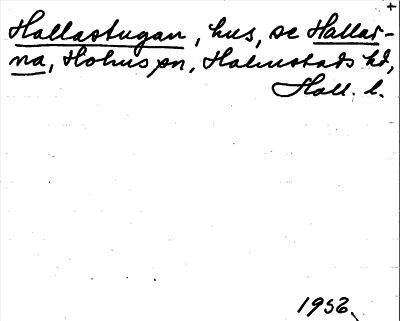 +
Hallastugan, hus, se Hallar-
na, Holms sn, Halmstads hd,
Hall. l.
1952.